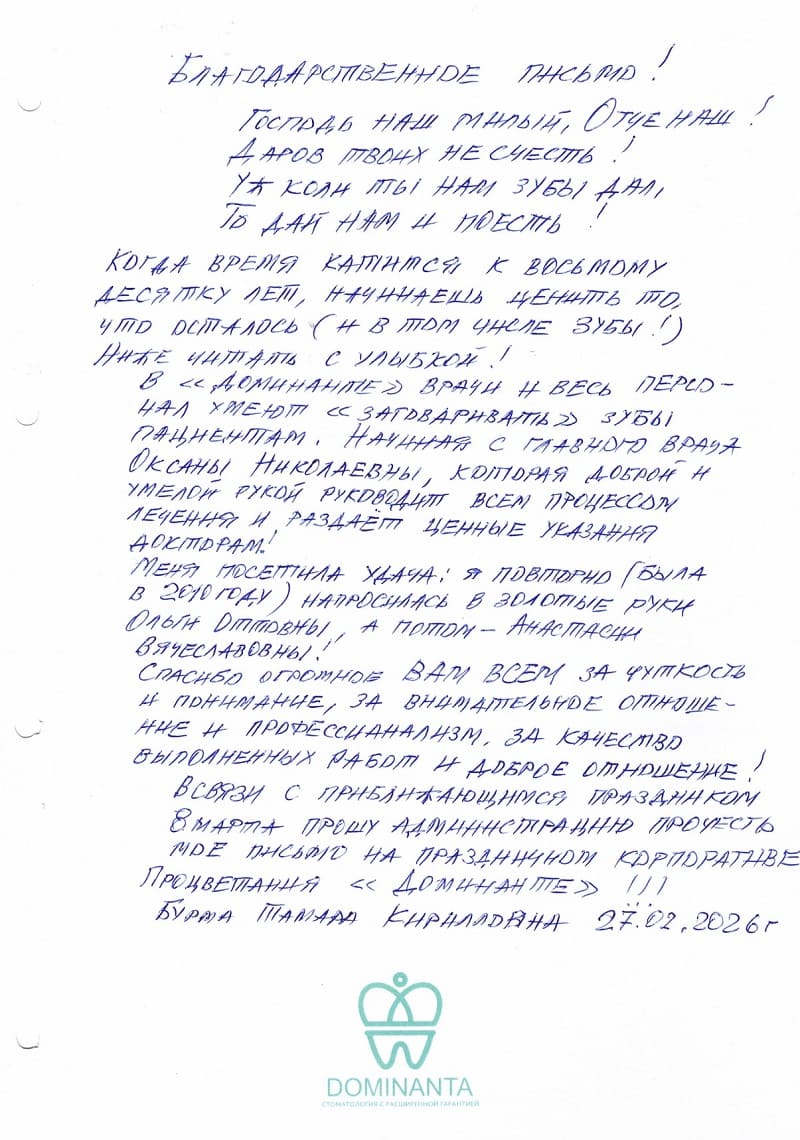 Благодарственное письмо!
Господь наш милый, Отче наш!
Даров твоих не счесть!
Уж коли ты нам зубы дал,
То дай нам и поесть!
Когда время катится к восьмому
десятку лет, начинаешь ценить то,
что осталось (и в том числе зубы!)
Ниже читать с улыбкой!
В «Доминанте» врачи и весь персо-
нал умеют «заговаривать» зубы
пациентам. Начиная с главного врача
Оксаны Николаевны, которая доброй и
умелой рукой руководит всем процессом
лечения и раздаёт ценные указания
докторам!
Меня посетила удача: я повторно (была
в 2010 году) напросилась в золотые руки
Ольги Оттовны, а потом – Анастасии
Вячеславовны!
Спасибо огромное ВАМ ВСЕМ за чуткость
и понимание, за внимательное отноше-
ние и профессианализм, за качество
выполненных работ и доброе отношение!
Всвязи с приближающимся праздником
8 марта прошу администрацию прочесть
мое письмо на праздничном корпоративе
Процветания «Доминанте» !!!
Бурма Тамара Кирилловна 27.02.2026г
DOMINANTA
СТОМАТОЛОГИЯ С РАСШИРЕННОЙ ГАРАНТИЕЙ